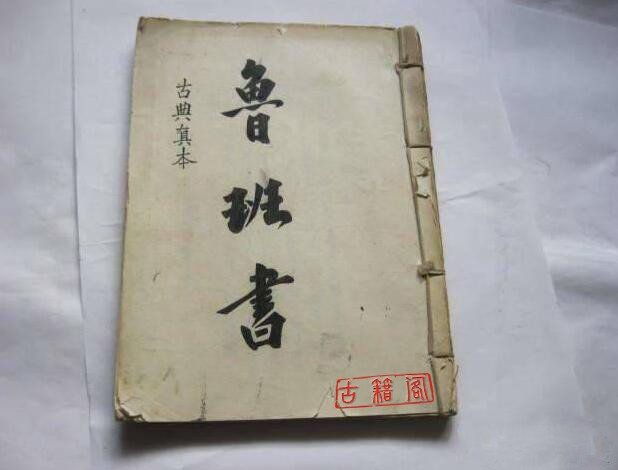 魯班書
古典真本
古籍阁